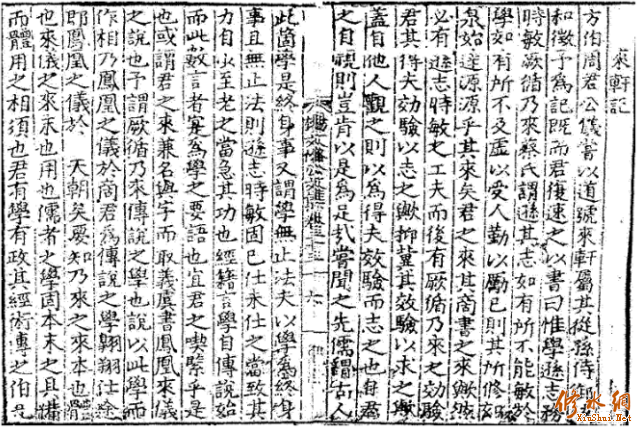 來軒記
方伯周君公儀嘗以道號來軒屬其從孫侍御
和徵予為記既而君復速之以書曰惟學遜志務
時敏厥脩乃來蔡氏謂遜其志如有所不能敏於
學如有所不及虛以受人勤以勵己則其所修如
泉始達源源乎其來矣君之來其商書之來歟然
必有遜志時敏之工夫而後有厥脩乃來之効驗
君其得夫効驗以志之歟抑冀其效驗以求之歟
蓋自他人觀之則以為得夫效驗而志之也自君
之自視則豈肯以是為足哉嘗聞之先儒謂古人
六
此箇學是終身事又謂學無止法夫以學為終身
事且無止法則遜志時敏固已仕未仕之當致其
力自少至老之當急其功也經籍言學自傅說始
而此數言者寔為學之要語也宜君之喫緊乎是
也或謂君之來兼名與字而取義虞書鳳凰來儀
之說也予謂厥脩乃來傅說之學也說以此學而
作相乃鳳凰之儀於商君為傅說之學翱翔仕途
即鳳凰之儀於天朝矣要知乃來之來本也體
也來儀之來末也用也儒者之學固本末之具備
而體用之相須也君有學有政其經術傳之伯
修水網
XiuShui.Net